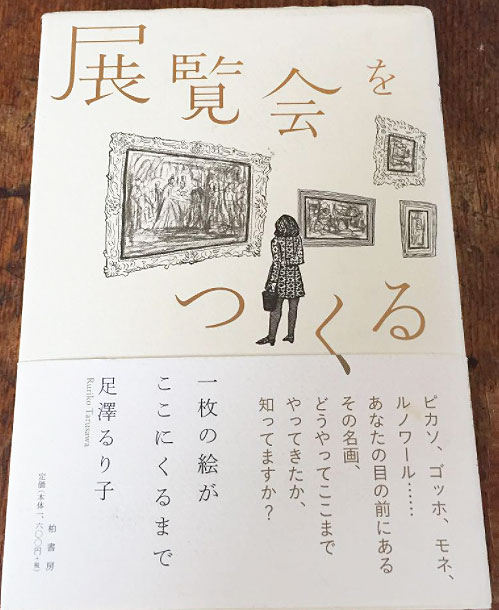 展覧会を
つくる
ピカソ、ゴッホ、モネ、
ルノワール……
あなたの目の前にある
その名画、
どうやってここまで
やってきたか、
知ってますか?
一枚の絵が
ここにくるまで
足澤るり子
Ruriko Tarusawa
柏書房
定価(本体一、六〇〇円+税)